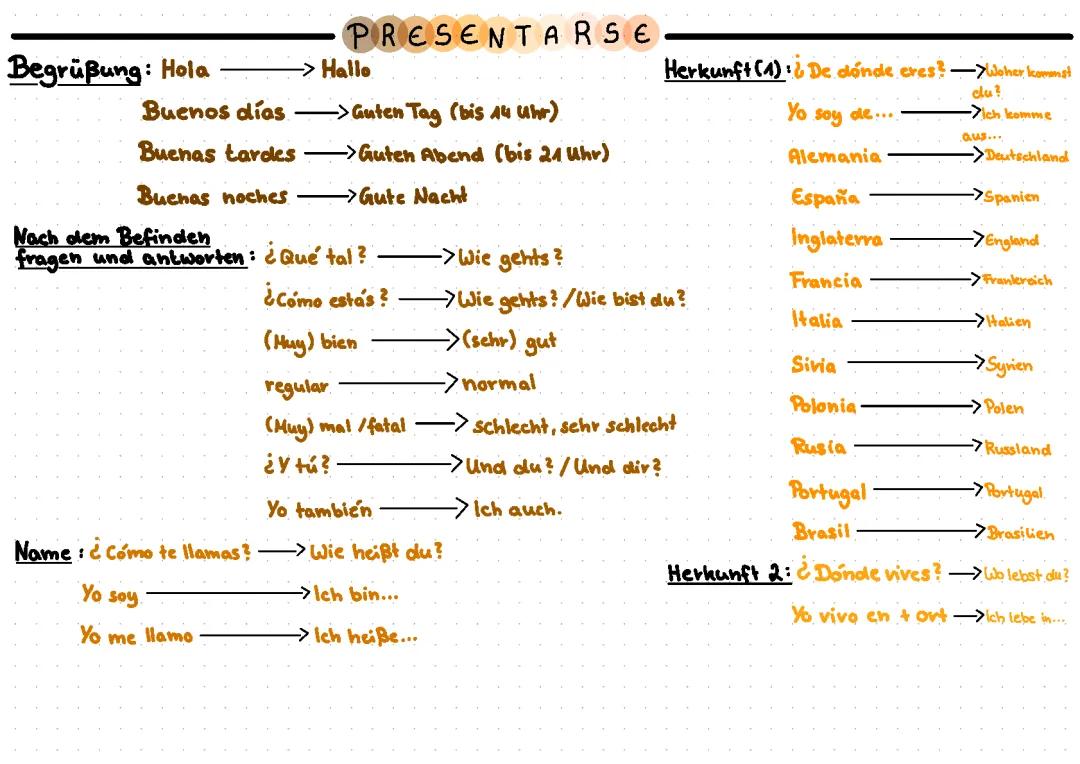 PRESENTARSE
Begrüßung: Hola → Hallo
Buenos días → Guten Tag (bis 14 Uhr)
Buenas tardes → Guten Abend (bis 21 Uhr)
Buenas noches → Gute Nacht
Nach dem Befinden
fragen und antworten: ¿Qué tal? → Wie gehts?
¿Cómo estás? → Wie gehts? / Wie bist du?
(Muy) bien → (sehr) gut
regular → normal
(Muy) mal / fatal → schlecht, sehr schlecht
¿Y tú? → Und du? / Und dir?
Yo también → Ich auch.
Name: ¿Cómo te llamas? → Wie heißt du?
Yo soy → Ich bin...
Yo me llamo → Ich heiße...
Herkunft (1): ¿De dónde eres? → Woher kommst
du?
Yo soy de... → Ich komme
aus...
Alemania → Deutschland
España → Spanien
Inglaterra → England
Francia → Frankreich
Italia → Italien
Siria → Syrien
Polonia → Polen
Rusía → Russland
Portugal → Portugal
Brasil → Brasilien
Herkunft 2: ¿Dónde vives? → Wo lebst du?
Yo vivo en + ort → Ich lebe in...